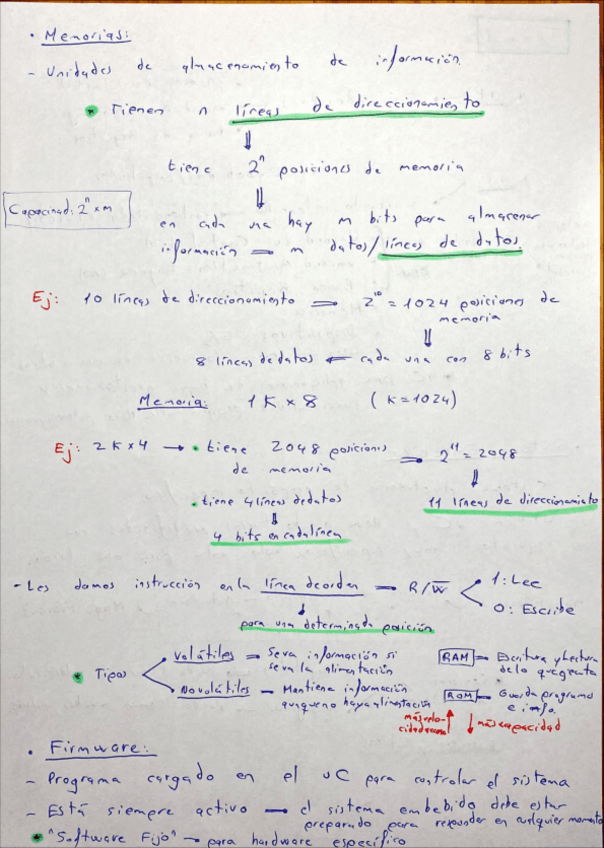 • Memorias:
- Unidades de almacenamiento de información.
• Tienen n líneas de direccionamiento
⇓
tiene 2ⁿ posiciones de memoria
⇓
Capacidad: 2ⁿ x m
en cada una hay m bits para almacenar
información ⇒ m datos/líneas de datos.
Ej: 10 líneas de direccionamiento ⇒ 2¹⁰ = 1024 posiciones de
memoria
⇓
8 líneas de datos ⇐ cada una con 8 bits
Memoria: 1K x 8 (K=1024)
Ej: 2K x 4 → • tiene 2048 posiciones ⇒ 2¹¹ = 2048
de memoria
⇓
• tiene 4 líneas de datos
11 líneas de direccionamiento
⇓
4 bits en cada línea
- Les damos instrucción en la línea de orden → R/W̅ < 1: Lee
0: Escribe
↓
para una determinada posición
• Tipos < Volátiles = Se va información si
se va la alimentación
No volátiles - Mantiene información
aunque no haya alimentación
RAM - Escritura y lectura
de lo que ejecuta
ROM - Guarda programa
e info.
más velo-
cidad ↑ ↓ más capacidad
• Firmware:
- Programa cargado en el uC para controlar el sistema
- Está siempre activo → el sistema embebido debe estar
preparado para responder en cualquier momento
• "Software Fijo" → para hardware específico